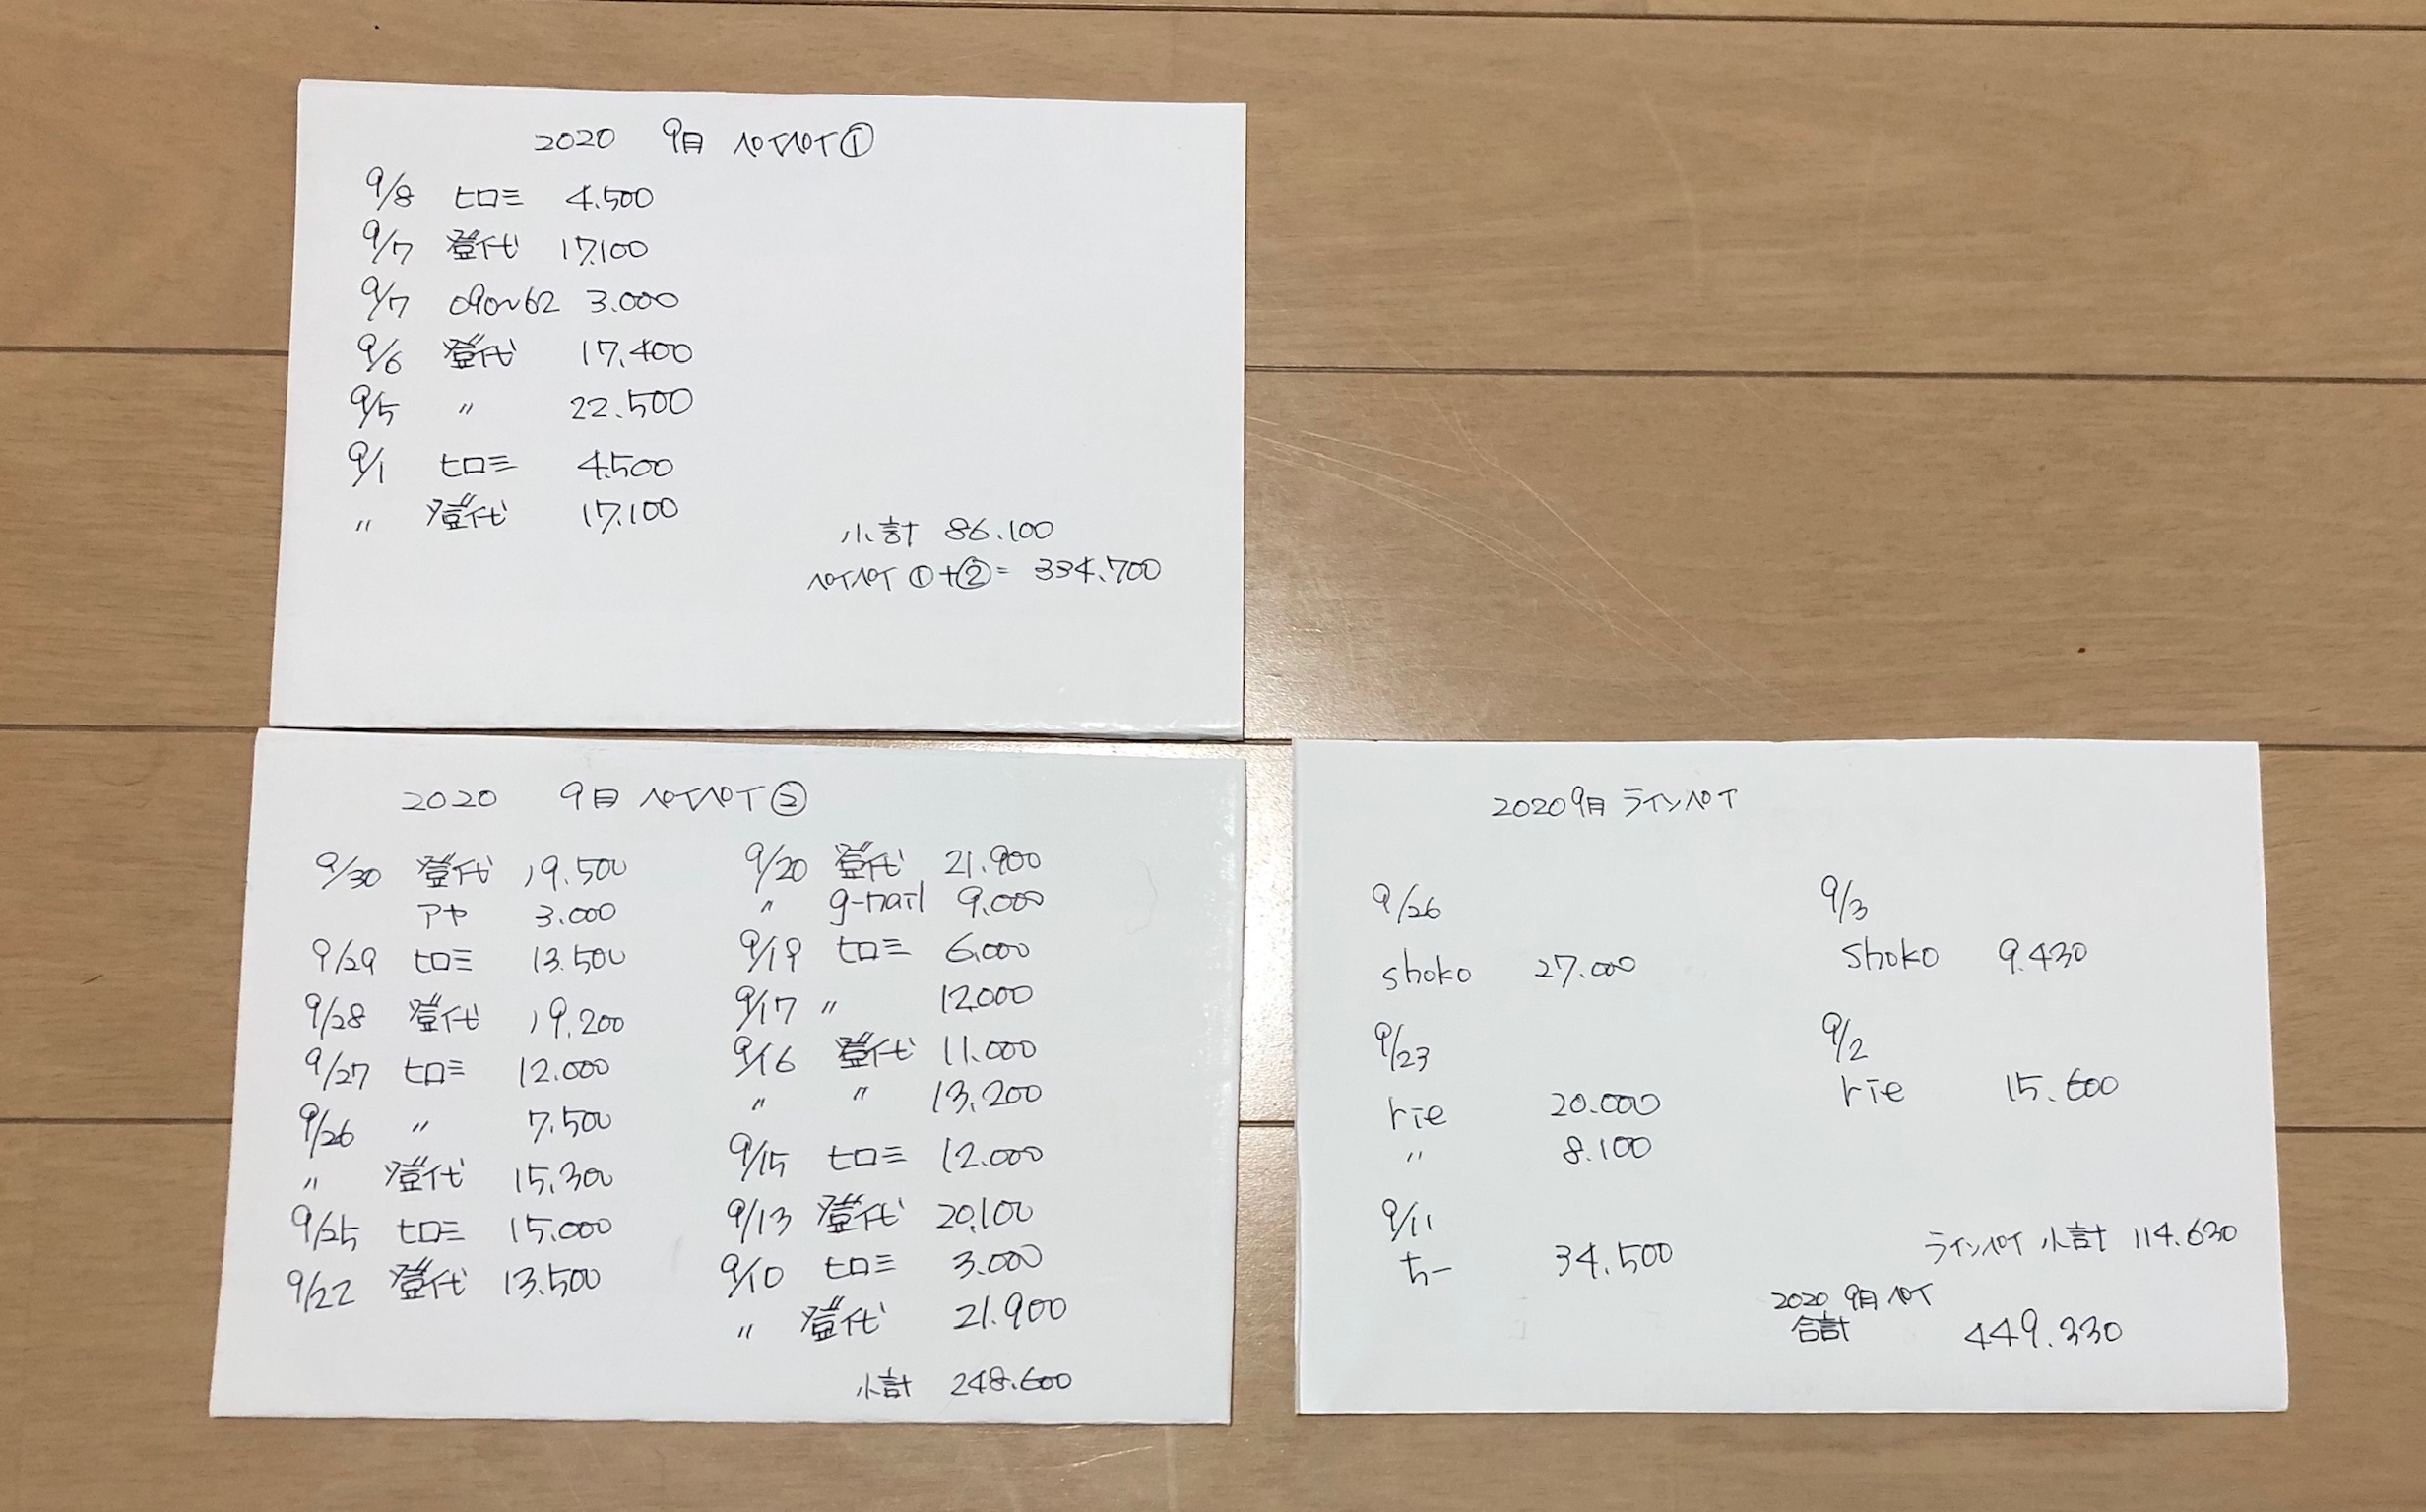 2020 9月 ペイペイ①
9/8 ヒロミ 4.500
9/7 登代 17.100
9/7 090~62 3.000
9/6 登代 17.400
9/5 〃 22.500
9/1 ヒロミ 4.500
〃 登代 17.100
小計 86.100
ペイペイ ①+②= 334.700
2020 9月 ペイペイ②
9/30 登代 19.500
アヤ 3.000
9/29 ヒロミ 13.500
9/28 登代 19.200
9/27 ヒロミ 12.000
9/26 〃 7.500
〃 登代 15.300
9/25 ヒロミ 15.000
9/22 登代 13.500
9/20 登代 21.900
〃 g-nail 9.000
9/19 ヒロミ 6.000
9/17 〃 12.000
9/16 登代 11.000
〃 〃 13.200
9/15 ヒロミ 12.000
9/13 登代 20.100
9/10 ヒロミ 3.000
〃 登代 21.900
小計 248.600
2020 9月 ラインペイ
9/26
shoko 27.000
9/23
rie 20.000
〃 8.100
9/11
ちー 34.500
9/3
shoko 9.430
9/2
rie 15.600
ラインペイ 小計 114.630
2020 9月 ペイ
合計 449.330